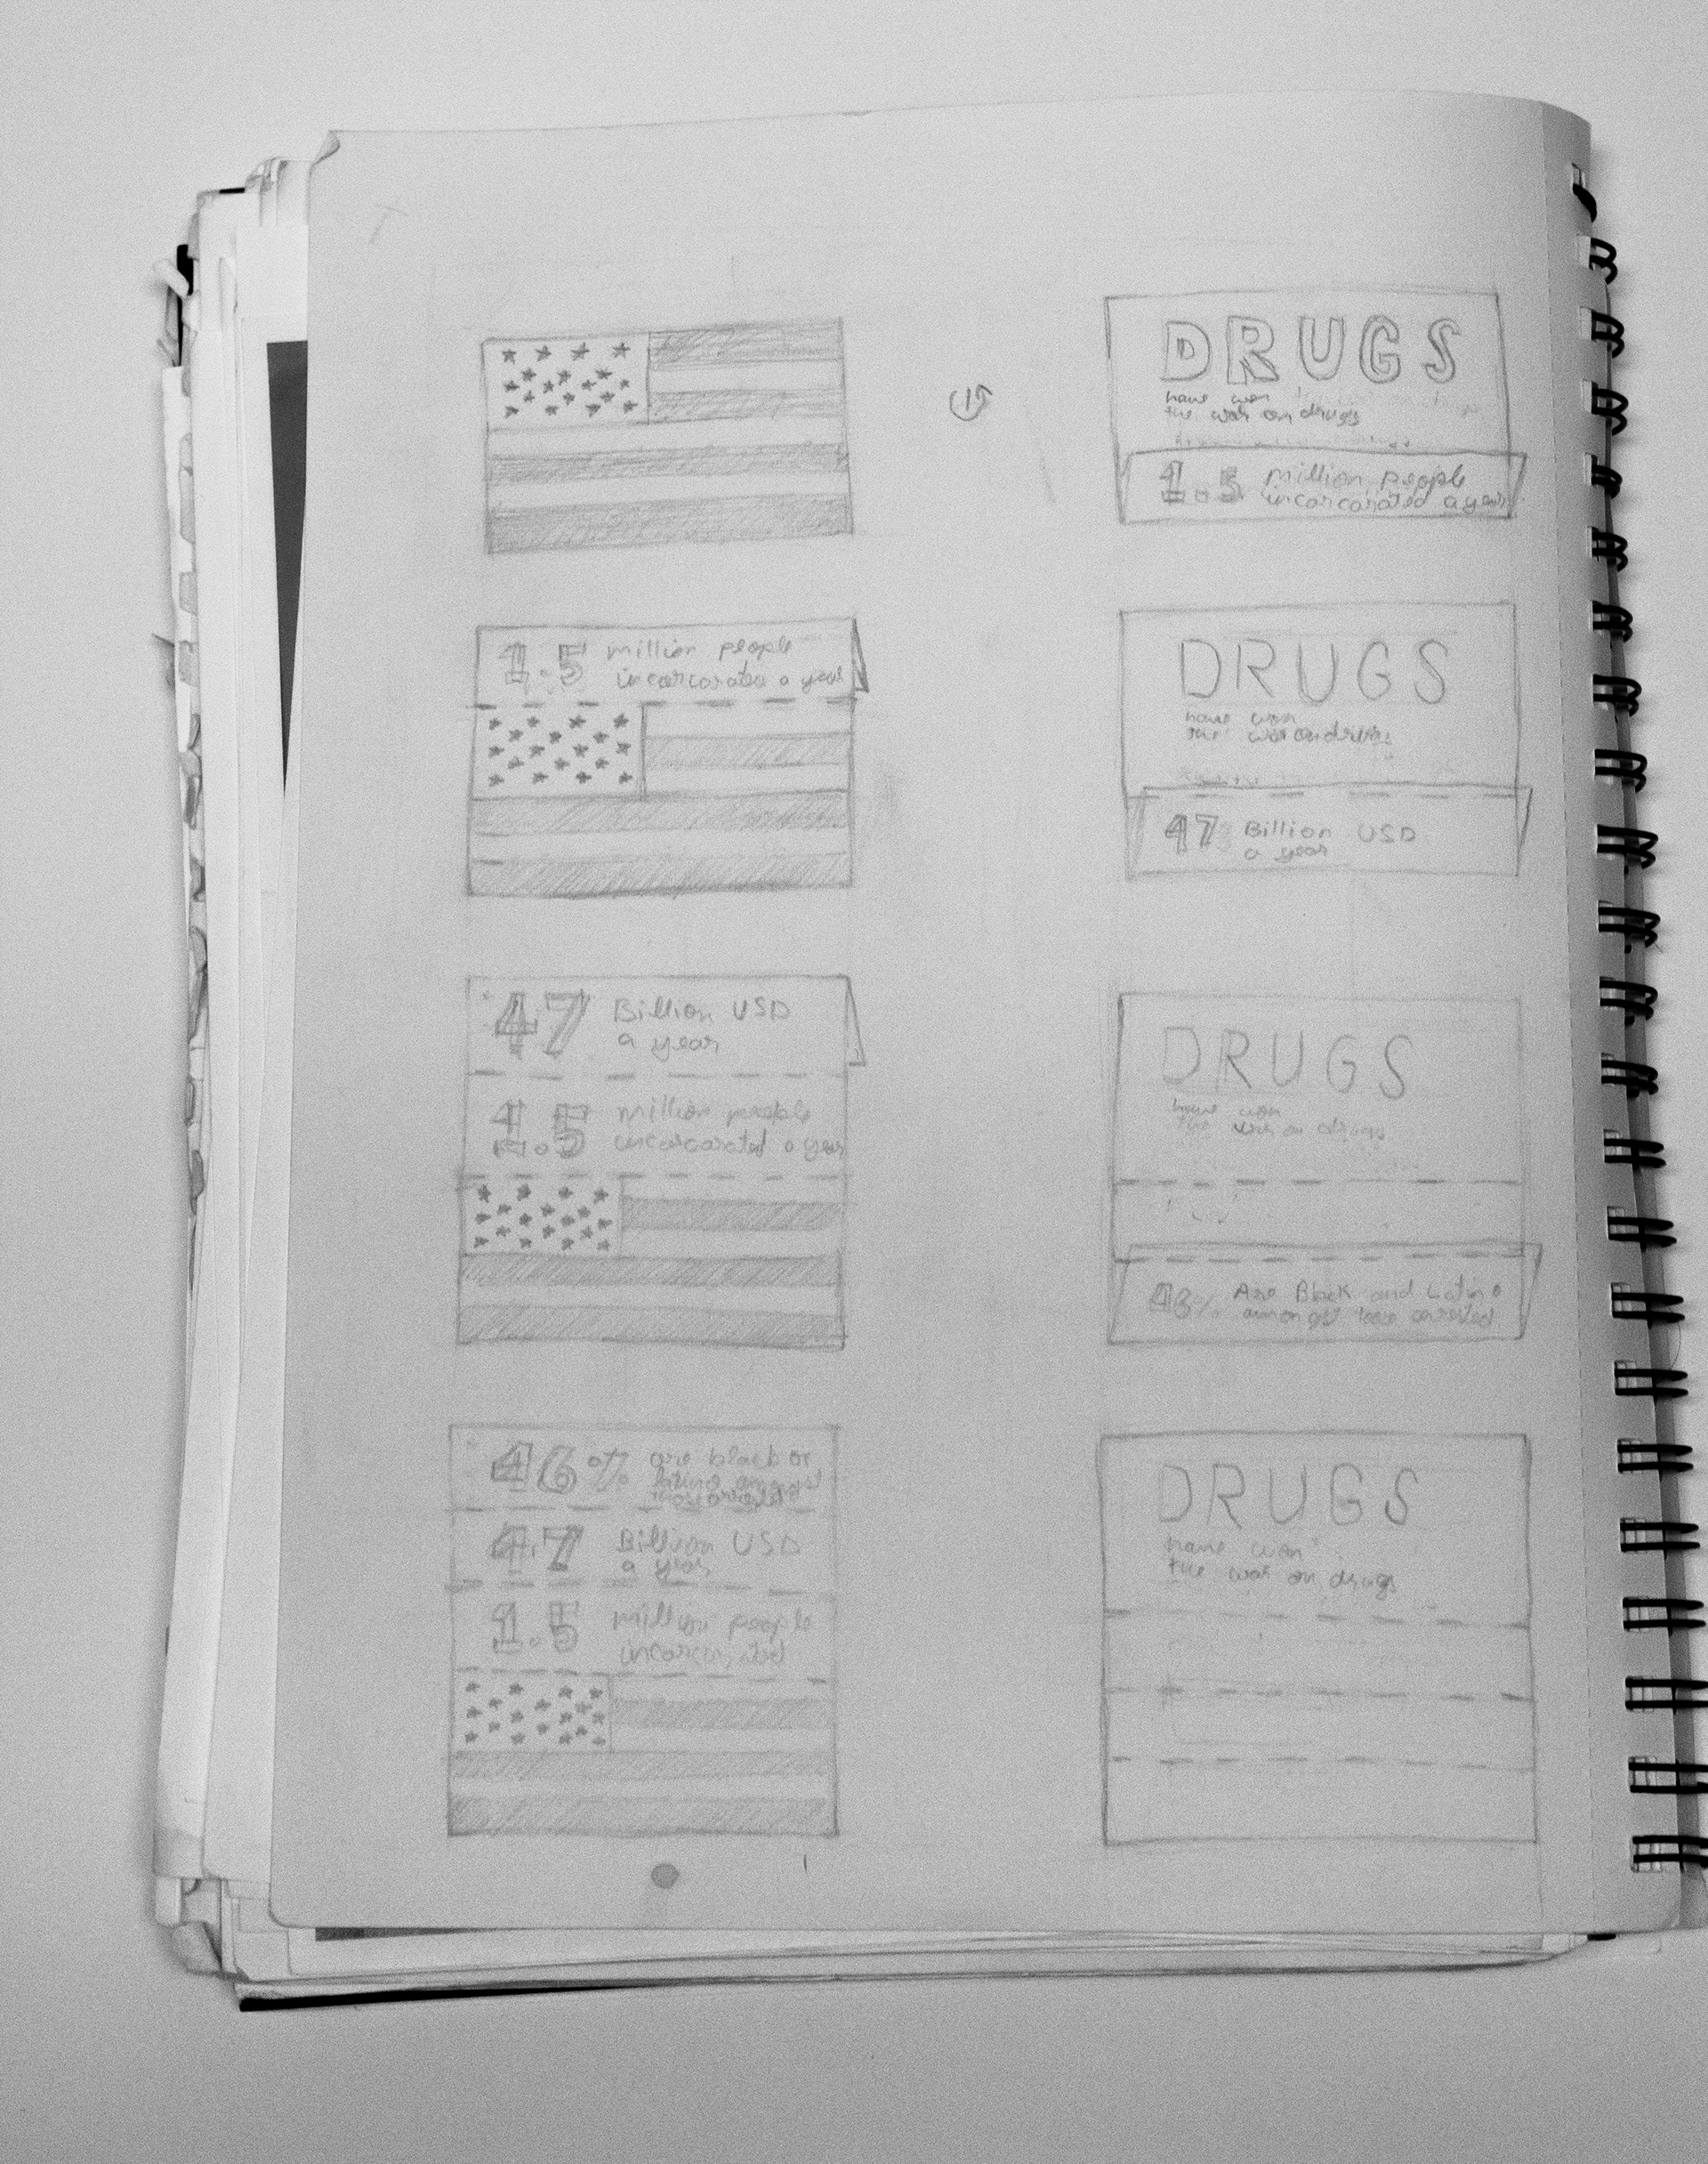 DRUGS
have won
the war on drugs
1.5 million people
incarcarated a year
1.5 million people
incarcarated a year
DRUGS
have won
the war on drugs
47 Billion USD
a year
47 Billion USD
a year
1.5 million people
incarcarated a year
DRUGS
have won
the war on drugs
46% Are Black and Latino
amongst those arrested
46% are black or
latino amongst
those arrested
47 Billion USD
a year
1.5 million people
DRUGS
have won
the war on drugs